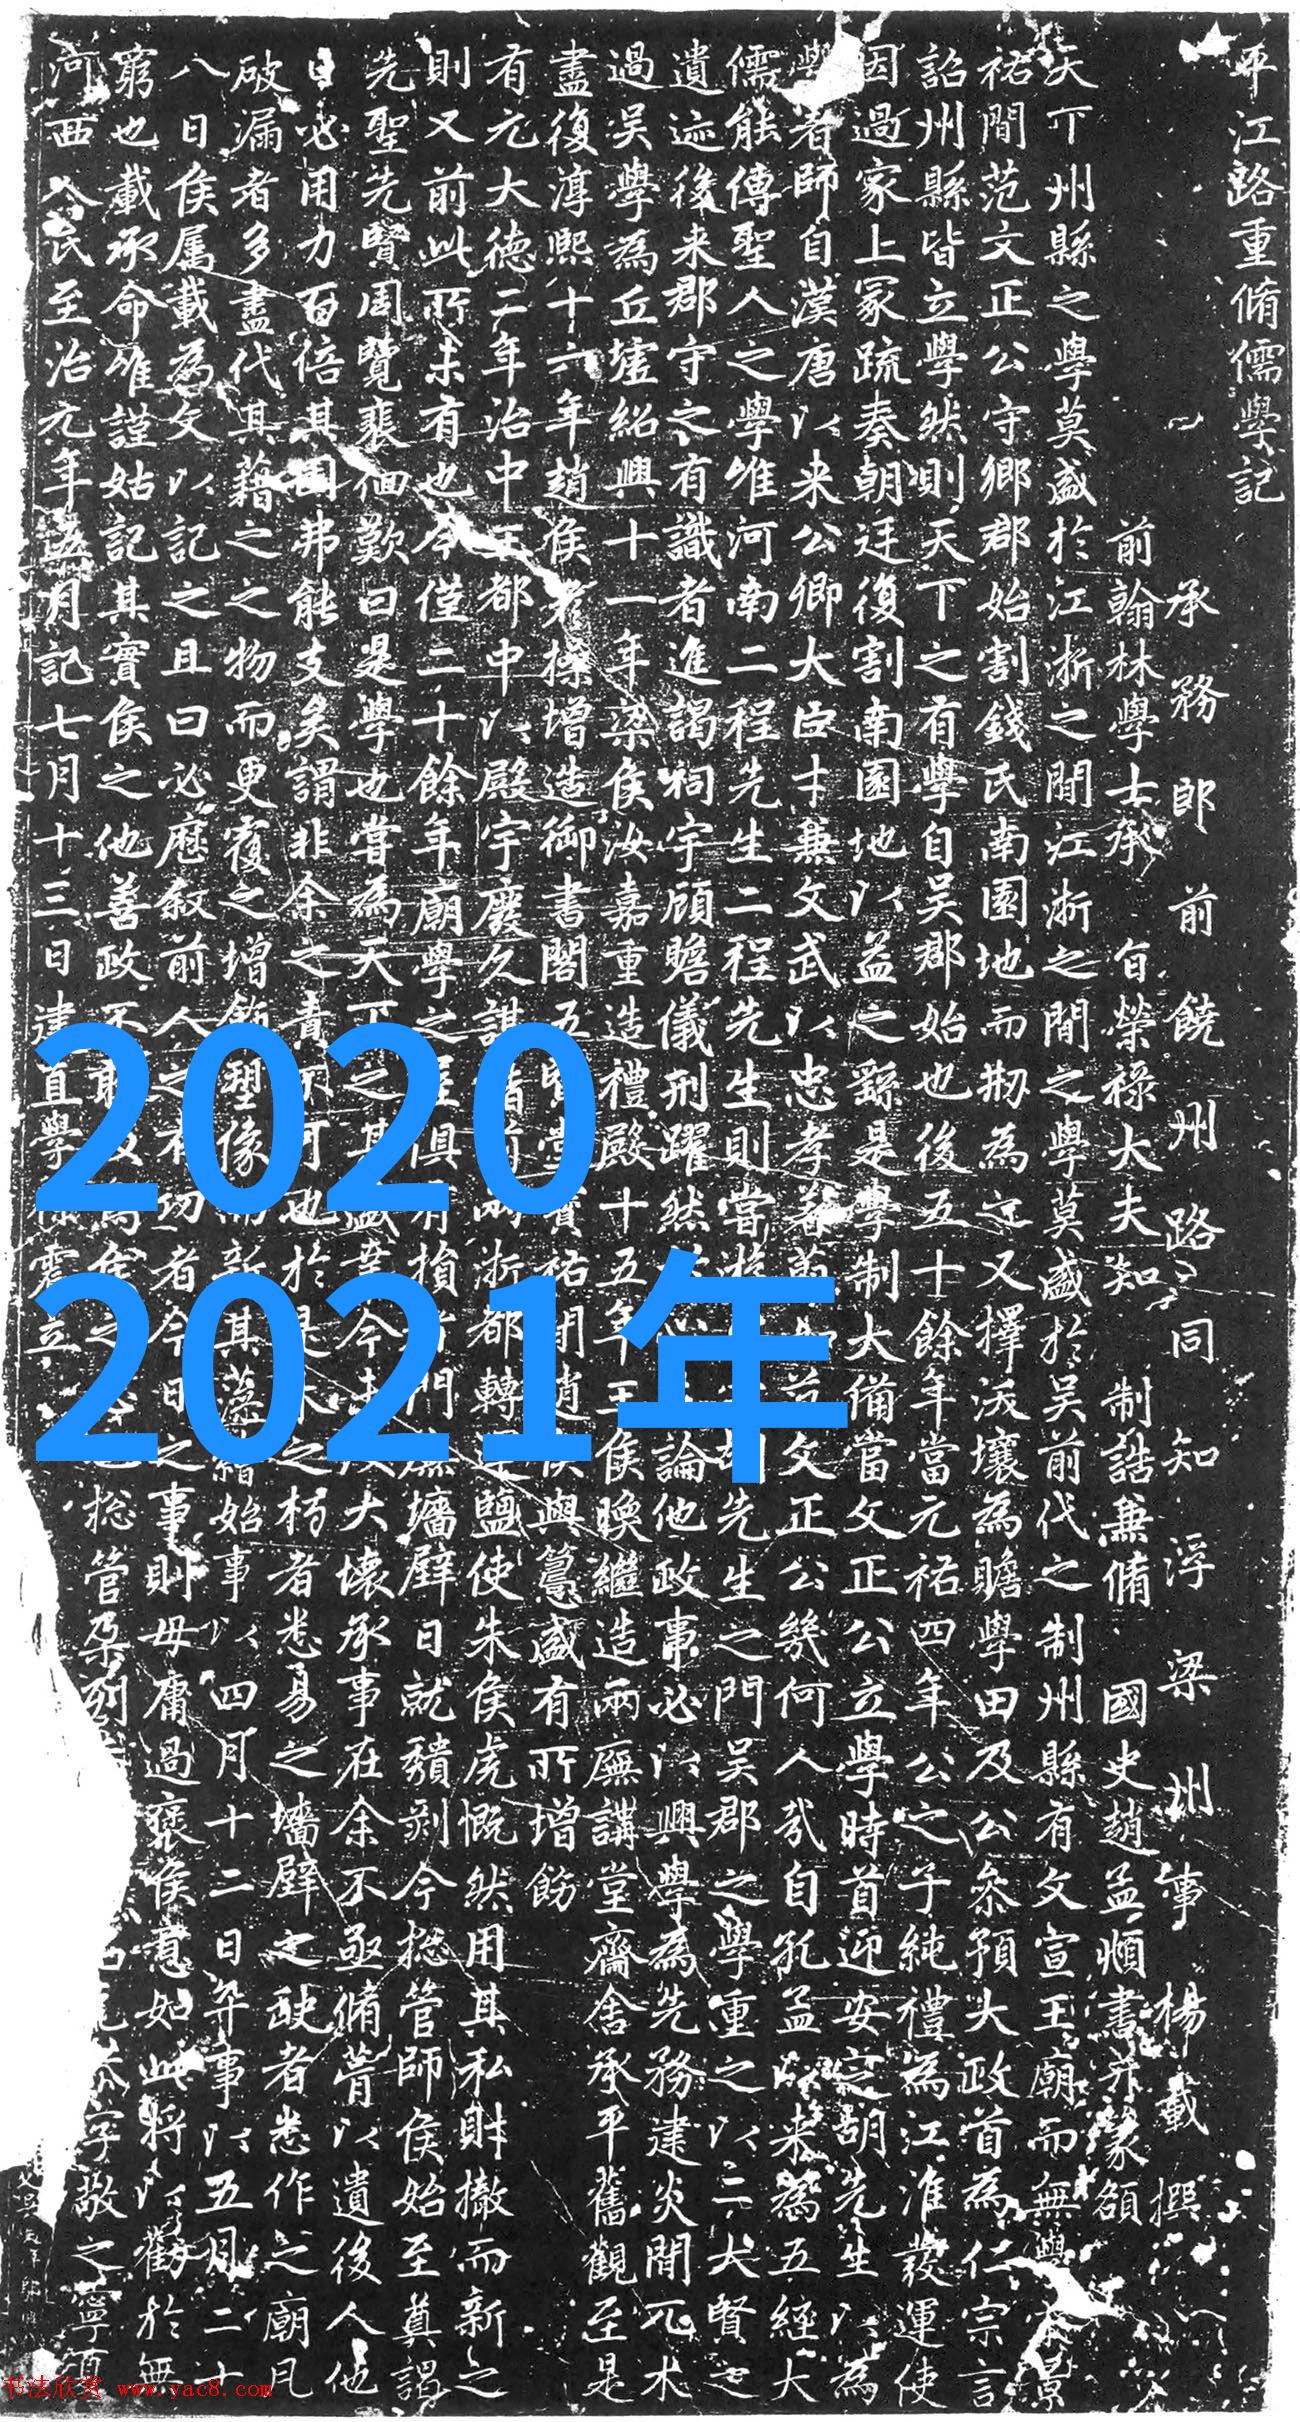 平江路重脩儒學記
承務郎前饒州路同知浮梁州事楊載撰
前翰林學士承旨榮祿大夫知制誥兼脩國史趙孟頫書并篆額
天下州縣之學莫盛於江浙之間江浙之間之學莫盛於吳前代之制州縣有文宣王廟而無學宋景
祐間范文正公守鄉郡始割錢氏南園地而剏為之又擇沃壤為贍學田及公叅預大政首為仁宗言
詔州縣皆立學然則天下之有學自吳郡始也後五十餘年當元祐四年公之子純禮為江淮發運使
因過家上冢疏奏朝廷復割南園地以益之繇是學制大備當文正公立學時首迎安定胡先生以為
學者師自漢唐以來公卿大臣才兼文武以忠孝著文正公幾何人哉自孔孟以來為五經大
儒能傳聖人之學唯河南二程先生二程先生則當先生之門吳郡之學重之以二大賢之
遺迹後來郡守之有識者進謁祠宇顧瞻儀刑躍然論他政事必以興學為先務建炎間兀朮
過吳學為丘墟紹興十一年梁侯汝嘉重造禮殿十五年王侯㬇繼造兩廡講堂齋舍承平舊觀至是
盡復淳熙十六年趙侯彥操增造御書閣五賢堂寶祐間趙侯與𥲅盛有所增飭
有元大德二年治中王都中以殿宇廢久謀兩浙都轉運鹽使朱侯虎慨然用其私財撤而新之
則又前此所未有也今僅二十餘年廟學之屋俱有損者門廡墻壁日就穨剥今捴管師侯始至奠謁
先聖先賢周覽裴佪歎曰是學也嘗為天下之甚盛今大壞承事在余不亟脩葺以遺後人他
日必用力百倍其困弗能支矣謂非余之責不可也於是木之朽者悉易之墻壁之缺者悉作之廟凡
破漏者多盡代其藉之之物而更覆之增飾塑像而新其藻繪始事以四月十二日弃事以五月二十
八日侯属載為文以記之且曰必歷敘前人之有功者今日之事則毋庸過襃侯意如此將以勸於無
窮也載承命唯謹姑記其實侯之他善政不敢捴管朶列
河西人氏至治元年五月記七月十三日建直學立
2020
2021年
书法欣赏 www.yac8.com